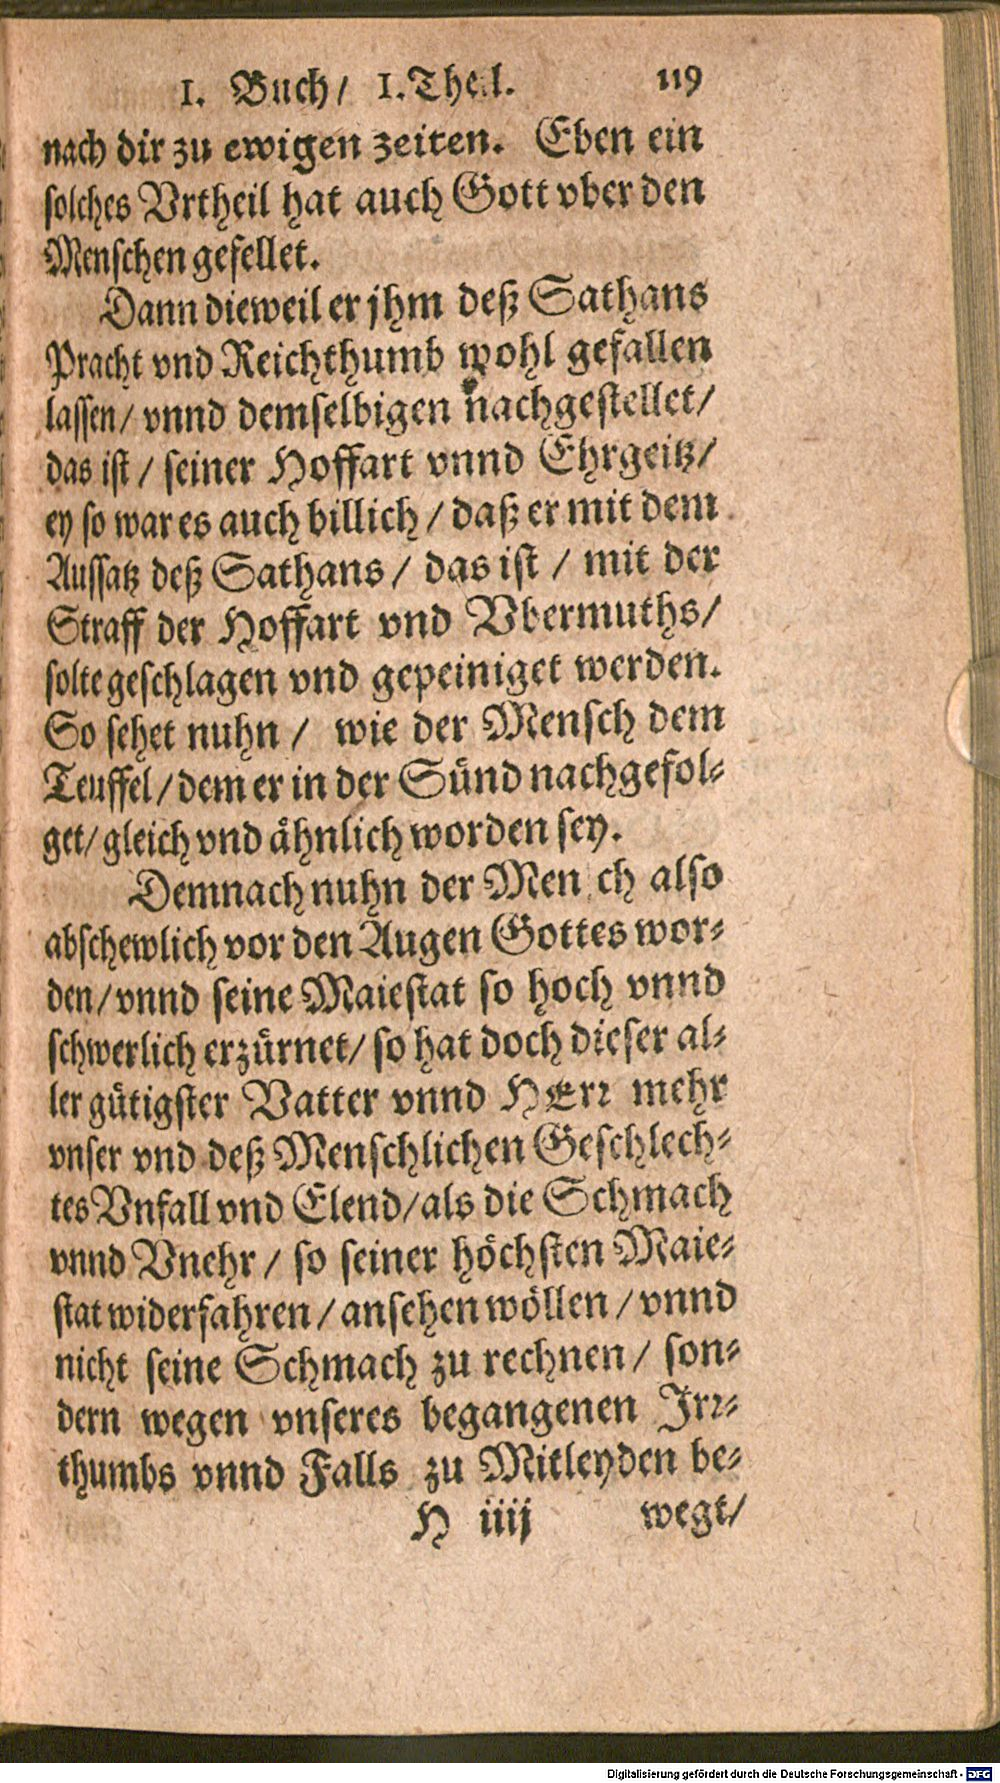 1. Buch/ 1. Theil. 119
nach dir zu ewigen zeiten. Eben ein
solches Vrtheil hat auch Gott vber den
Menschen gefellet.
Dann dieweil er jhm deß Sathans
Pracht vnd Reichthumb wohl gefallen
lassen/ vnnd demselbigen nachgestellet/
das ist / seiner Hoffart vnnd Ehrgeitz/
ey so war es auch billich / daß er mit dem
Aussatz deß Sathans / das ist / mit der
Straff der Hoffart vnd Vbermuths/
solte geschlagen vnd gepeiniget werden.
So sehet nuhn / wie der Mensch dem
Teuffel / dem er in der Sünd nachgefol-
get/ gleich vnd ähnlich worden sey.
Demnach nuhn der Men ch also
abschewlich vor den Augen Gottes wor-
den / vnnd seine Maiestat so hoch vnnd
schwerlich erzürnet/ so hat doch dieser al-
ler gütigster Vatter vnnd HErr mehr
vnser vnd deß Menschlichen Geschlech-
tes Vnfall vnd Elend/ als die Schmach
vnnd Vnehr / so seiner höchsten Maie-
stat widerfahren / ansehen wöllen / vnnd
nicht seine Schmach zu rechnen / son-
dern wegen vnseres begangenen Irr-
thumbs vnnd Falls zu Mitleyden be-
H iiij wegt/
Digitalisierung gefördert durch die Deutsche Forschungsgemeinschaft - DFG